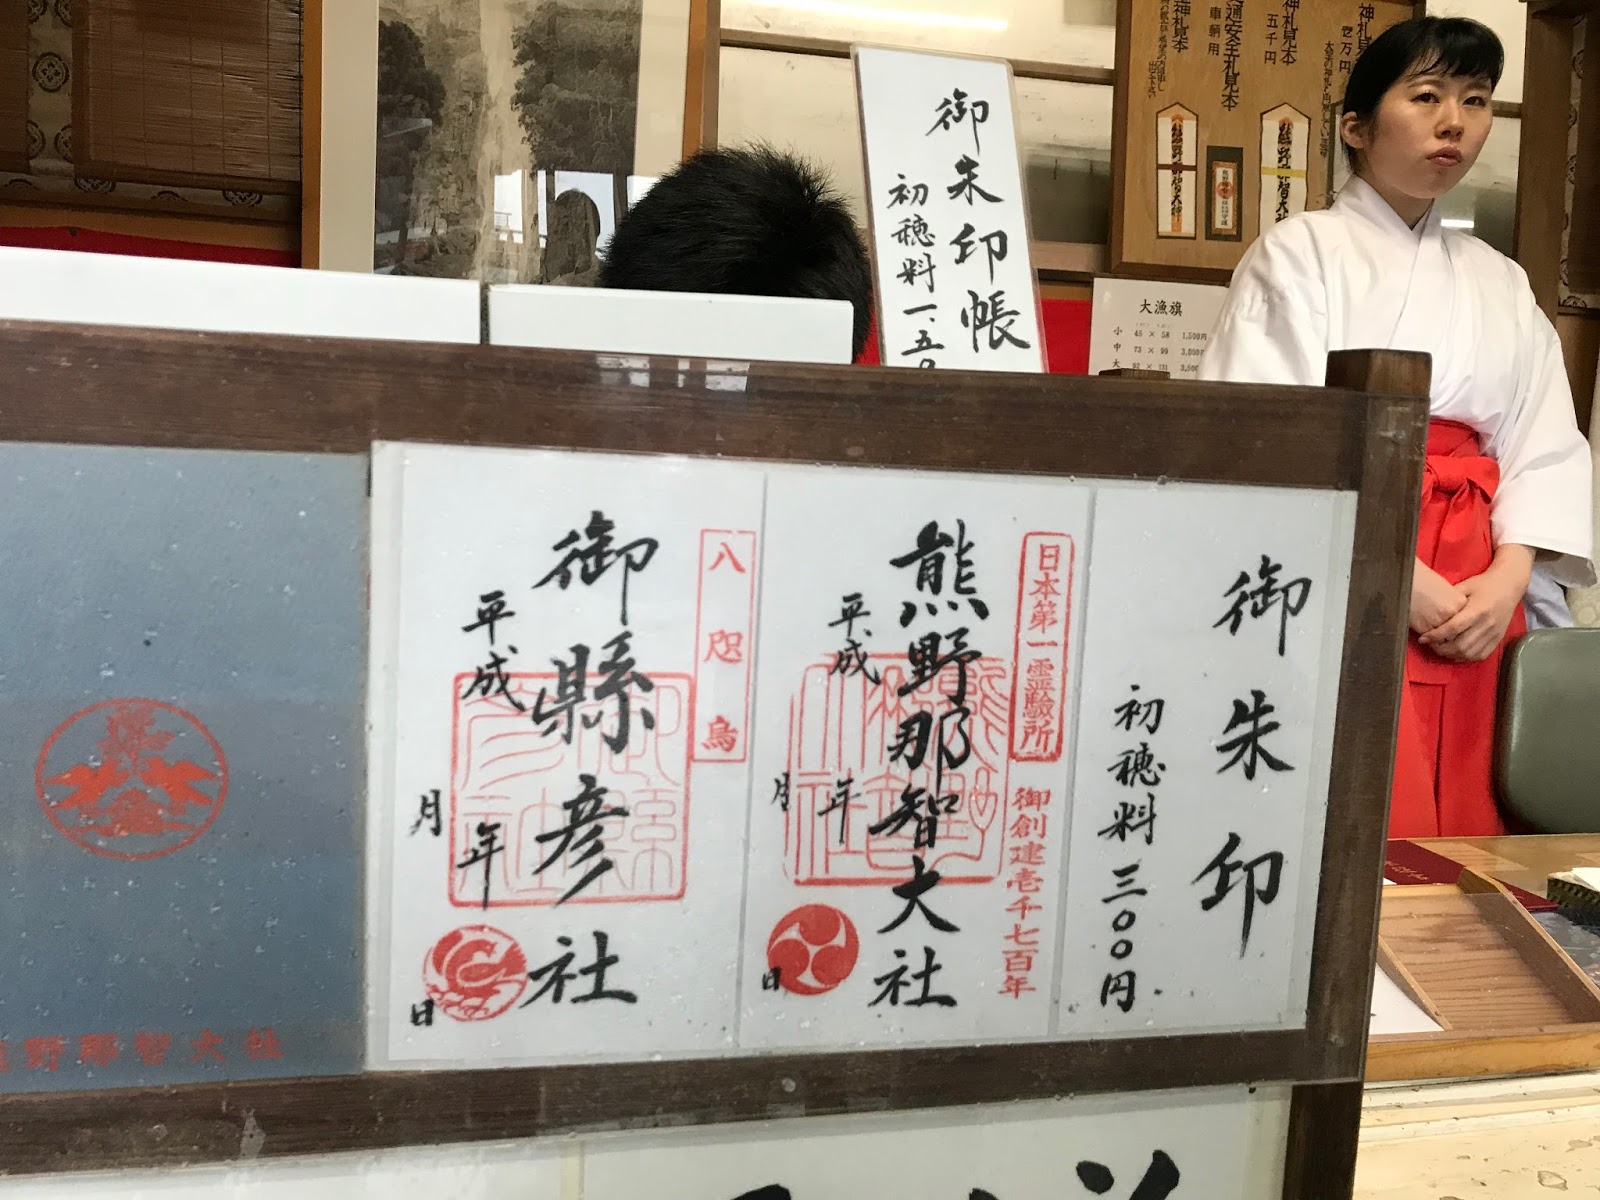 御朱印帳
初穂料一、五
神札見本
壱万円
神札見本
五千円
交通安全札見本
車輌用
神札見本
熊野那智大社
大漁旗
小 45 × 58 1,500円
中 73 × 99 3,000円
大
御朱印
初穂料三〇〇円
日本第一霊験所
御創建壱千七百年
熊野那智大社
平成
年
月
日
八咫烏
御縣彦社
平成
年
月
日
野那智大社